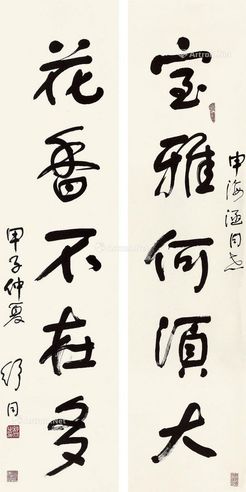 申海涵同志
室雅何须大
花香不在多
甲子仲夏
舒同